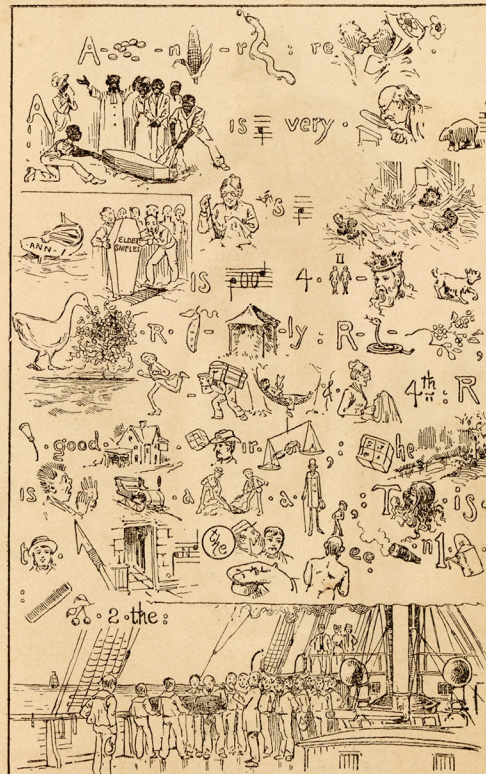 A - n - r : re
A is very
ANN
ELDER SNIFLES
's
is 4 II
R - ly : R -
- & 4th : R
good ir ; he
is a a ; T is
t % ee n 1
: 2 the :